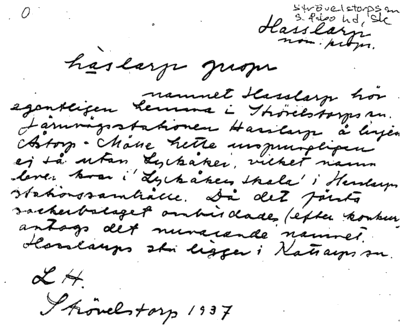 Strövelstorps sn
S. Åsbo hd, Sk
Hasslarp
nom. propr.
hàslarp propr
namnet Hasslarp hör
egentligen hemma i Strövelstorps sn.
Järnvägsstationen Hasslarp å linjen
Åstorp - Mölle hette ursprungligen
ej så utan Lyckåker, vilket namn
lever kvar i 'Lyckåkers skola' i Hasslarps
stationssamhälle. Då det första
sockerbolaget ombildades (efter konkurs)
antogs det nuvarande namnet.
Hasslarps stn ligger i Kattarps sn.
L H.
Strövelstorp 1937